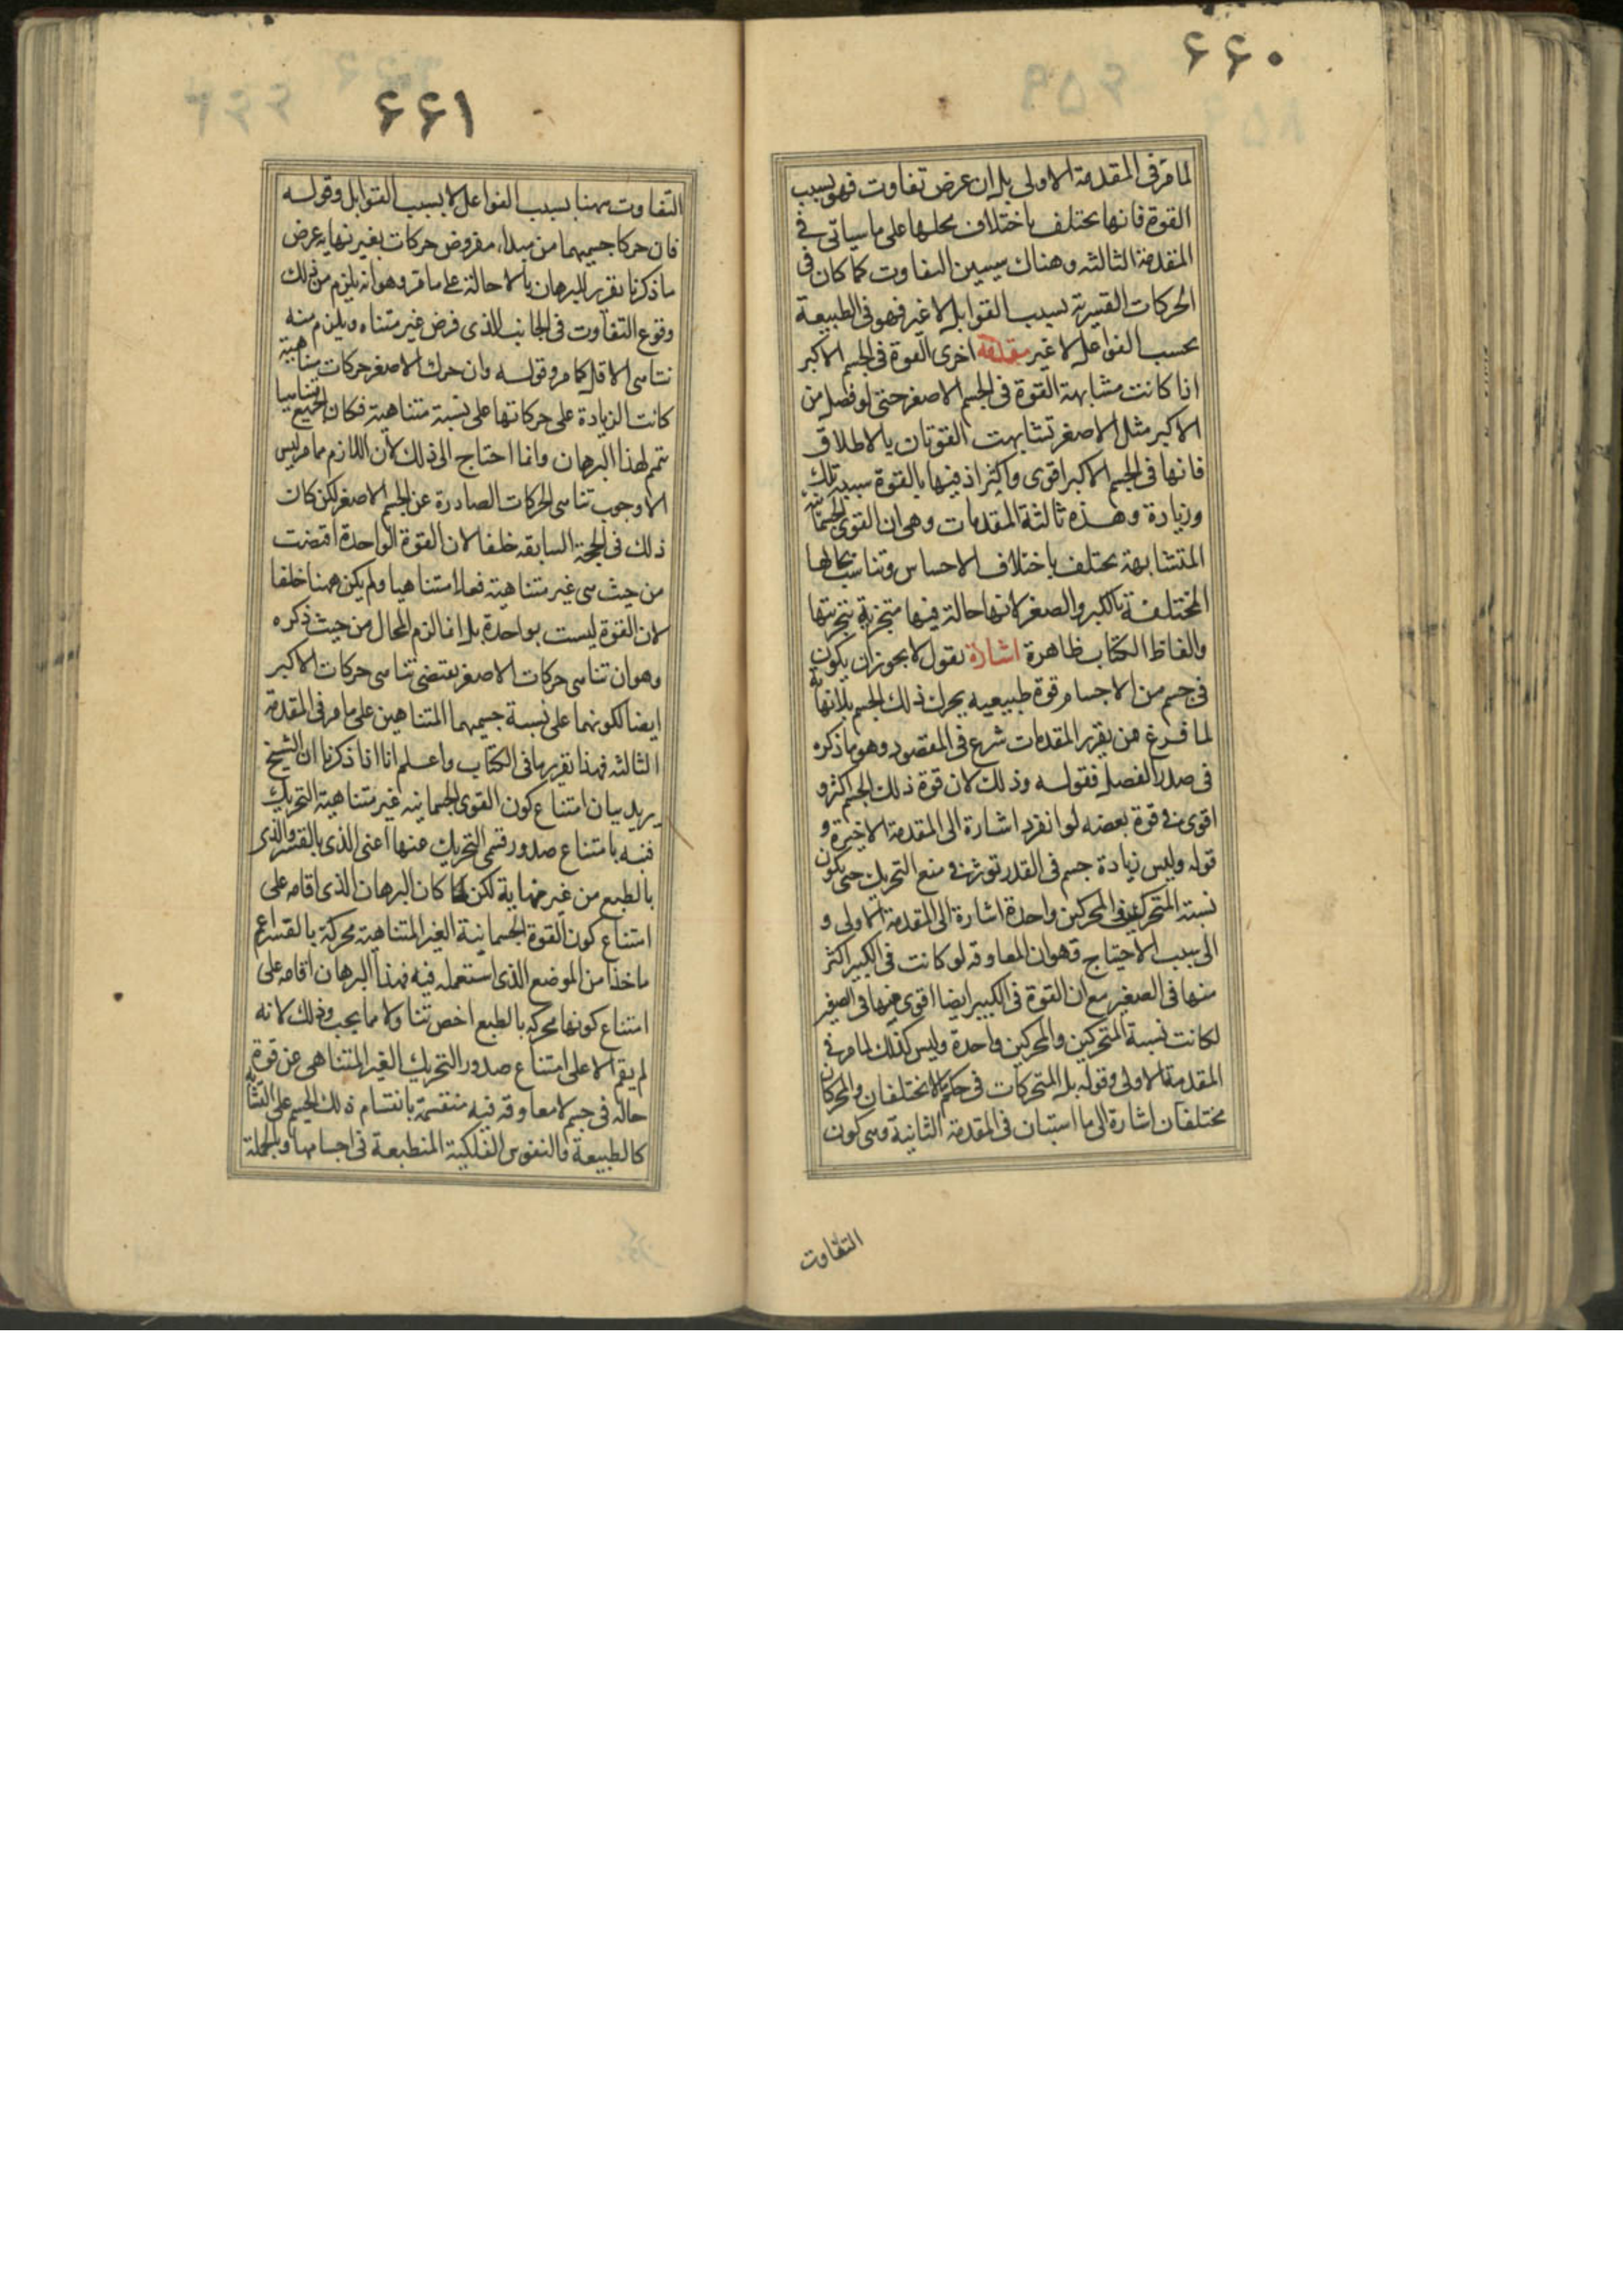 ۶۶۰
لما مر فی المقدمة الاولی بل ان عرض تفاوت فهو بسبب
القوة فانها یختلف باختلاف محلها علی ما سیاتی فی
المقدمة الثالثه و هناك سیبین التفاوت كما كان فی
الحركات القسریة بسبب القوابل لا غیر فهو فی الطبیعة
بحسب الفواعل لا غیر مقدمة اخری القوة فی الجسم الاكبر
اذا كانت مشابهة القوة فی الجسم الاصغر حتی لو فصل من
الاكبر مثل الاصغر تشابهت القوتان بالاطلاق
فانها فی الجسم الاكبر اقوی و اكثر اذ فیها بالقوة شبیه تلك
و زیادة و هذه ثالثة المقدمات و هی ان القوی الجسمانیة
المتشابهة یختلف باختلاف الاجسام و تناسب محالها
المختلفة بالكبر و الصغر لانها حالة فیها متجزیة بتجزیتها
و الفاظ الكتاب ظاهرة اشارة نقول لا یجوز ان یكون
فی جسم من الاجسام قوة طبیعیه یحرك ذلك الجسم بلا نهایة
لما فرغ من تقریر المقدمات شرع فی المقصود و هو ما ذكره
فی صدر الفصل فقوله و ذلك لان قوة ذلك الجسم اكثر و
اقوی من قوة بعضه لو انفرد اشارة الی المقدمة الاخیرة و
قوله و لیس زیادة جسم فی القدر تؤثر فی منع التحریك حتی یكون
نسبة المتحركین و المحركین واحدة اشارة الی المقدمة الاولی و
الی سبب الاحتیاج و هو ان المعاوقه لو كانت فی الكبیر اكثر
منها فی الصغیر مع ان القوة فی الكبیر ایضا اقوی منها فی الصغیر
لكانت نسبة المتحركین و المحركین واحدة و لیس كذلك لما مر فی
المقدمة الاولی و قوله بل المتحركات فی حكم لا یختلفان و المحركان
مختلفان اشارة الی ما استبان فی المقدمة الثانیة و هی كون
التفاوت
۶۶۱
التفاوت ههنا بسبب الفواعل لا بسبب القوابل و قوله
فان حركا جسمیهما من مبداء مفروض حركات بغیر نهایه عرض
ما ذكرنا تقریر البرهان بالاحالة علی ما مر و هو انه یلزم من ذلك
وقوع التفاوت فی الجانب الذی فرض غیر متناه و یلزم منه
تناهی الاقل كما مر و قوله و ان حرك الاصغر حركات متناهیة
كانت الزیادة علی حركاتها علی نسبة متناهیة فكان الجمیع متناهیا
تتم لهذا البرهان و انما احتاج الی ذلك لان اللازم مما مر لیس
الا وجوب تناهی الحركات الصادرة عن الجسم الاصغر لكن كان
ذلك فی الحجة السابقه خلفا لان القوة الواحدة اقتضت
من حیث هی غیر متناهیة فعلا متناهیا و لم یكن ههنا خلفا
لان القوة لیست بواحدة بل انما لزم المحال من حیث ذكره
و هو ان تناهی حركات الاصغر یقتضی تناهی حركات الاكبر
ایضا لكونهما علی نسبة جسمیهما المتناهین علی ما مر فی المقدمة
الثالثه فهذا تقریرها فی الكتاب و اعلم انا انا ذكرنا ان الشیخ
یرید بیان امتناع كون القوی الجسمانیه غیر متناهیة التحریك
فنبه بامتناع صدور قسمی التحریك عنها اعنی الذی بالقسر و الذی
بالطبع من غیر نهایة لكن لما كان البرهان الذی اقامه علی
امتناع كون القوة الجسمانیة الغیر المتناهیة محركة بالقسر اعم
ماخذا من الموضع الذی استعمله فیه فهذا البرهان اقامه علی
امتناع كونها محركه بالطبع اخص تناولا مما یجب و ذلك لانه
لم یقم الا علی امتناع صدور التحریك الغیر المتناهی عن قوة
حالة فی جسم لا معاوقه فیه منقسمة بانقسام ذلك الجسم علی التشابه
كالطبیعة و النفوس الفلكیة المنطبعة فی اجسامها و بالجملة